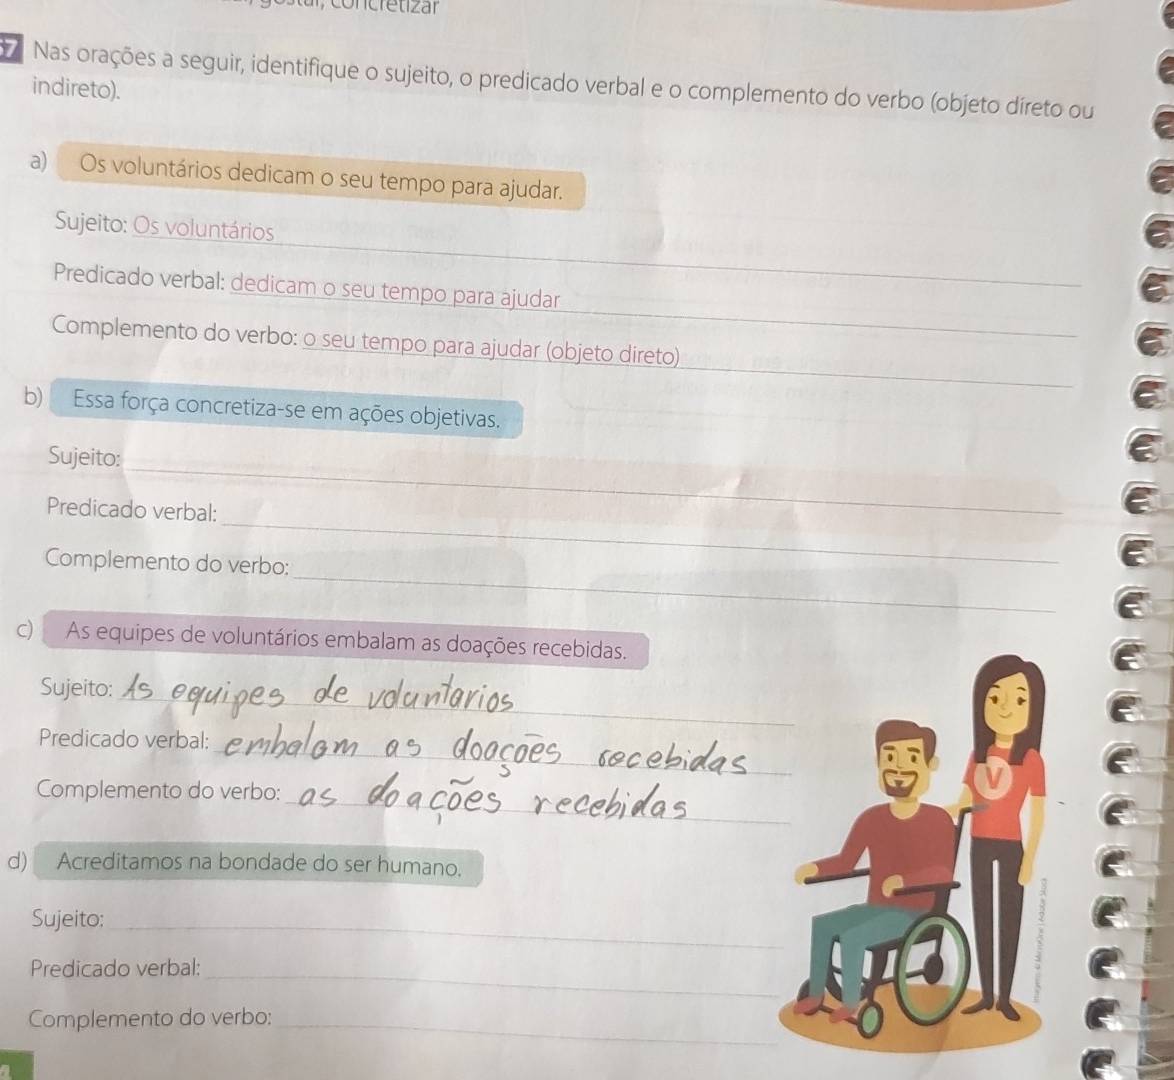 concretizar
57 Nas orações a seguir, identifique o sujeito, o predicado verbal e o complemento do verbo (objeto direto ou
indireto).
a) Os voluntários dedicam o seu tempo para ajudar.
Sujeito: Os voluntários
Predicado verbal: dedicam o seu tempo para ajudar
Complemento do verbo: o seu tempo para ajudar (objeto direto)
b) Essa força concretiza-se em ações objetivas.
Sujeito:
Predicado verbal:
Complemento do verbo:
c) As equipes de voluntários embalam as doações recebidas.
Sujeito: As equipes de voluntarios
Predicado verbal: embalam as doações recebidas
Complemento do verbo: as doações recebidas
d) Acreditamos na bondade do ser humano.
Sujeito:
Predicado verbal:
Complemento do verbo:
V